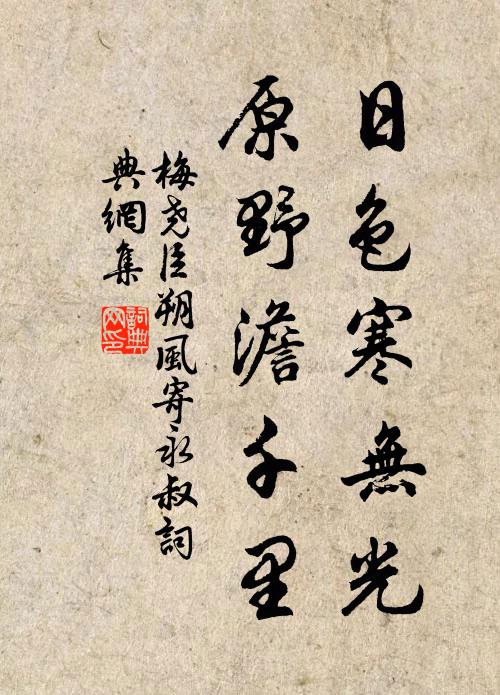 日色寒無光
原野澹千里
梅堯臣朔風寄永叔詞
典網集
詞典
网印